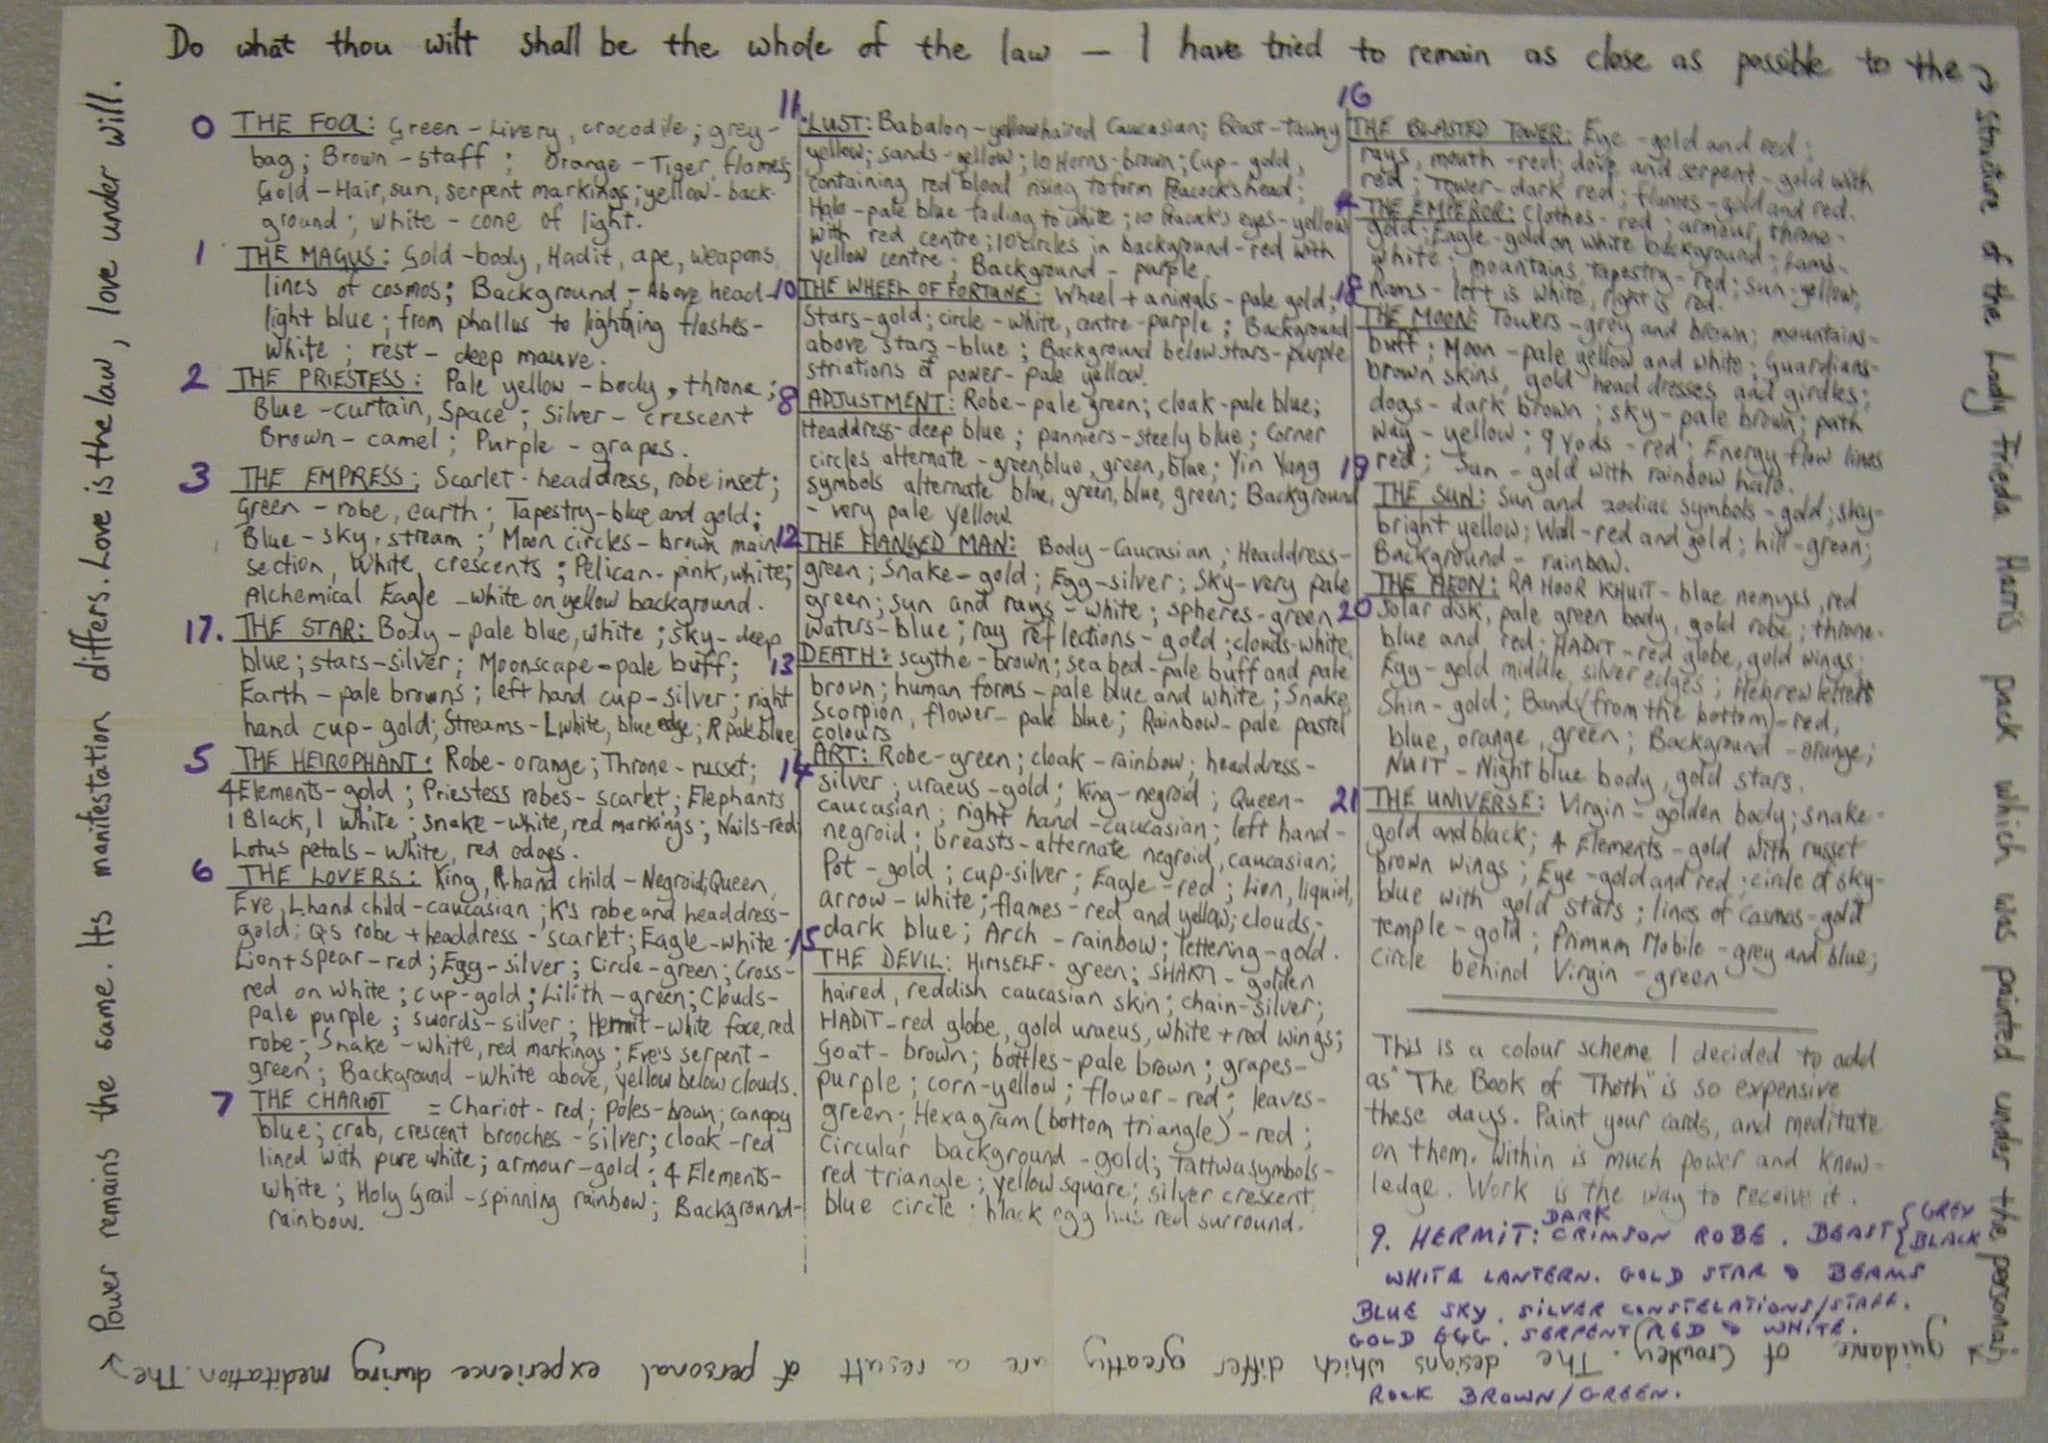 Do what thou wilt shall be the whole of the law — I have tried to remain as close as possible to the →
structure of the Lady Frieda Harris pack which was painted under the personal
guidance of Crowley. The designs which differ greatly are a result of personal experience during meditation. The →
Power remains the same. Its manifestation differs. Love is the law, love under will.
0 THE FOOL: Green - Livery, crocodile; grey-
bag; Brown - staff; Orange - Tiger, flames;
Gold - Hair, sun, serpent markings; yellow - back-
ground; white - cone of light.
1 THE MAGUS: Gold - body, Hadit, ape, weapons,
lines of cosmos; Background - Above head-
light blue; from phallus to lightning flashes-
white; rest - deep mauve.
2 THE PRIESTESS: Pale yellow - body, throne;
Blue - curtain, Space; Silver - crescent
Brown - camel; Purple - grapes.
3 THE EMPRESS: Scarlet - headdress, robe inset;
Green - robe, earth; Tapestry - blue and gold;
Blue - sky, stream; Moon circles - brown main
section, White crescents; Pelican - pink, white;
Alchemical Eagle - white on yellow background.
17. THE STAR: Body - pale blue, white; sky - deep
blue; stars - silver; Moonscape - pale buff;
Earth - pale browns; left hand cup - silver; right
hand cup - gold; Streams - L white, blue edge; R pale blue
5 THE HEIROPHANT: Robe - orange; Throne - russet;
4 Elements - gold; Priestess robes - scarlet; Elephants
1 Black, 1 white; snake - white, red markings; Nails - red
Lotus petals - white, red edges.
6 THE LOVERS: King, R.hand child - Negroid; Queen,
Eve, L.hand child - caucasian; K's robe and headdress -
gold; Qs robe + headdress - scarlet; Eagle - white;
Lion + Spear - red; Egg - silver; Circle - green; Cross -
red on white; cup - gold; Lilith - green; Clouds -
pale purple; swords - silver; Hermit - white face, red
robe; Snake - white, red markings; Eve's serpent -
green; Background - White above, yellow below clouds.
7 THE CHARIOT = Chariot - red; Poles - brown; canopy
blue; crab, crescent brooches - silver; cloak - red
lined with pure white; armour - gold; 4 Elements -
white; Holy Grail - spinning rainbow; Background -
rainbow.
11. LUST: Babalon - yellow haired Caucasian; Beast - tawny
yellow; sands - yellow; 10 Horns - brown; Cup - gold,
containing red blood rising to form Peacock's head;
Halo - pale blue fading to white; 10 Peacock's eyes - yellow
with red centre; 10 circles in background - red with
yellow centre; Background - purple.
10 THE WHEEL OF FORTUNE: Wheel + animals - pale gold;
Stars - gold; circle - white, centre - purple; Background
above stars - blue; Background below stars - purple
striations of power - pale yellow.
8 ADJUSTMENT: Robe - pale green; cloak - pale blue;
Headdress - deep blue; panniers - steely blue; Corner
circles alternate - green, blue, green, blue; Yin Yang
symbols alternate blue, green, blue, green; Background
- very pale yellow
12 THE HANGED MAN: Body - Caucasian; Headdress -
green; Snake - gold; Egg - silver; Sky - very pale
green; sun and rays - white; spheres - green
waters - blue; ray reflections - gold; clouds - white
13 DEATH: scythe - brown; sea bed - pale buff and pale
brown; human forms - pale blue and white; Snake
Scorpion, flower - pale blue; Rainbow - pale pastel
colours
14 ART: Robe - green; cloak - rainbow; headdress -
silver; uraeus - gold; King - negroid; Queen -
caucasian; right hand - caucasian; left hand -
negroid; breasts - alternate negroid, caucasian;
Pot - gold; cup - silver; Eagle - red; Lion, liquid,
arrow - white; flames - red and yellow; clouds -
dark blue; Arch - rainbow; lettering - gold.
15 THE DEVIL: HIMSELF - green; SHAKTI - golden
haired, reddish caucasian skin; chain - silver;
HADIT - red globe, gold uraeus, white + red wings;
Goat - brown; bottles - pale brown; grapes -
purple; corn - yellow; flower - red; leaves -
green; Hexagram (bottom triangle) - red;
Circular background - gold; Tattwa symbols -
red triangle; yellow square; silver crescent
blue circle; black egg has red surround.
16 THE BLASTED TOWER: Eye - gold and red;
rays, mouth - red; dove and serpent - gold with
red; Tower - dark red; flames - gold and red.
4 THE EMPEROR: Clothes - red; armour, throne -
gold; Eagle - gold on white background; Lamb -
white; mountains, tapestry - red; sun - yellow;
Rams - left is white, right is red.
18 THE MOON: Towers - grey and brown; mountains -
buff; Moon - pale yellow and white; Guardians -
brown skins, gold head dresses and girdles;
dogs - dark brown; sky - pale brown; path
way - yellow; 9 Yods - red; Energy flow lines
red; Sun - gold with rainbow halo.
19 THE SUN: Sun and zodiac symbols - gold; sky -
bright yellow; Wall - red and gold; hill - green;
Background - rainbow.
20 THE AEON: RA HOOR KHUIT - blue nemyss, red
Solar disk, pale green body, gold robe; throne -
blue and red; HADIT - red globe, gold wings;
Egg - gold middle, silver edges; Hebrew letters
Shin - gold; Bands (from the bottom) - red,
blue, orange, green; Background - orange;
NUIT - Night blue body, gold stars.
21 THE UNIVERSE: Virgin - golden body; snake -
gold and black; 4 Elements - gold with russet
brown wings; Eye - gold and red; circle of sky -
blue with gold stars; lines of cosmos - gold
temple - gold; Primum Mobile - grey and blue;
circle behind Virgin - green
This is a colour scheme I decided to add
as "The Book of Thoth" is so expensive
these days. Paint your cards, and meditate
on them. Within is much power and know-
ledge. Work is the way to receive it.
9. HERMIT: DARK CRIMSON ROBE. BEAST { GREY BLACK
WHITE LANTERN. GOLD STAR & BEAMS
BLUE SKY. SILVER CONSTELATIONS/STAFF.
GOLD EGG. SERPENT (RED & WHITE.
ROCK BROWN/GREEN.